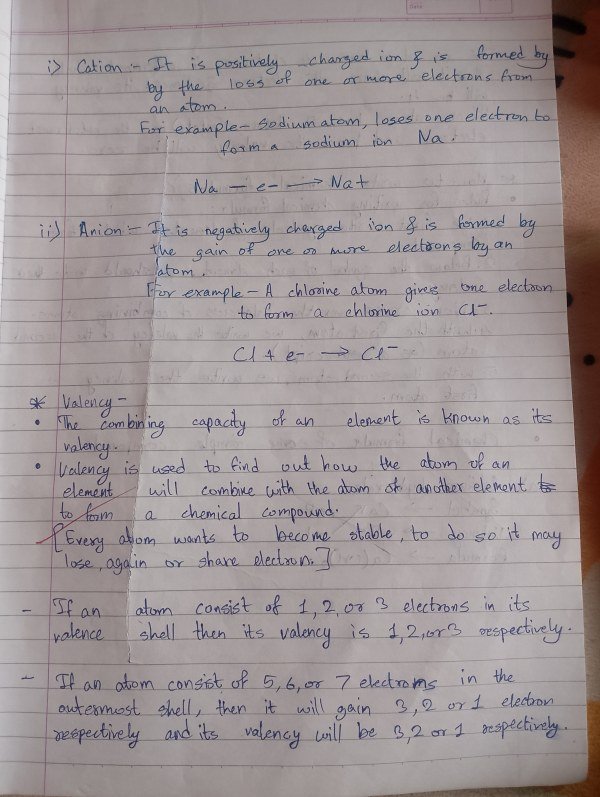 i) Cation :- It is positively charged ion & is formed by
by the loss of one or more electrons from
an atom.
For example - Sodium atom, loses one electron to
form a sodium ion Na.
Na - e- → Na+
ii) Anion :- It is negatively charged ion & is formed by
the gain of one or more electrons by an
atom.
For example - A chlorine atom gives one electron
to form a chlorine ion Cl-.
Cl + e- → Cl-
* Valency -
• The combining capacity of an element is known as its
valency.
• Valency is used to find out how the atom of an
element will combine with the atom of another element
to form a chemical compound.
[Every atom wants to become stable, to do so it may
lose, again or share electron.]
- If an atom consist of 1, 2, or 3 electrons in its
valence shell then its valency is 1, 2, or 3 respectively.
- If an atom consist of 5, 6, or 7 electroms in the
outermost shell, then it will gain 3, 2 or 1 electron
respectively and its valency will be 3, 2 or 1 respectively.